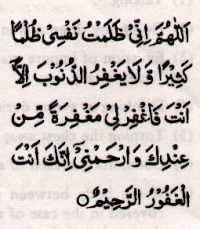 اَللّٰهُمَّ اِنِّىْ ظَلَمْتُ نَفْسِىْ ظُلْمًا
كَثِيْرًا وَّلَا يَغْفِرُ الذُّنُوْبَ اِلَّا
اَنْتَ فَاغْفِرْ لِىْ مَغْفِرَةً مِّنْ
عِنْدِكَ وَارْحَمْنِىْ اِنَّكَ اَنْتَ
الْغَفُوْرُ الرَّحِيْمُ ○